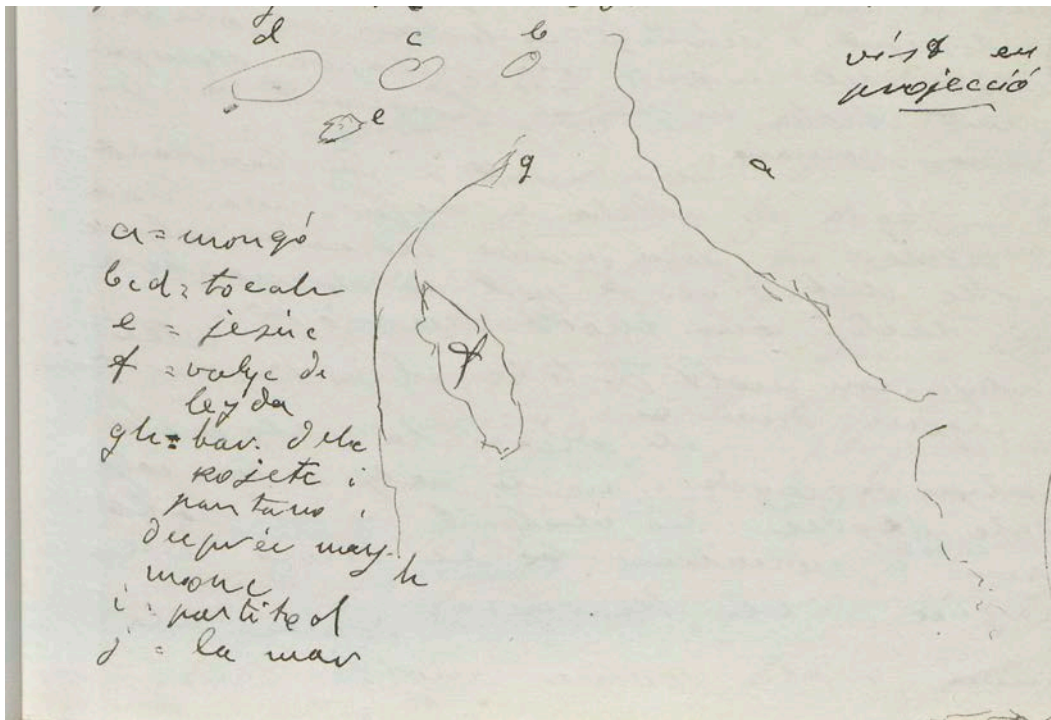 d c b
vist en
projecció
e
a
g
a = mongó
bcd = tocals
e = jesús
f = valyc de
leyda
f
gh = bar. dels
rojets i
pantano i
després marj-
h
i = partit al
j = la mar